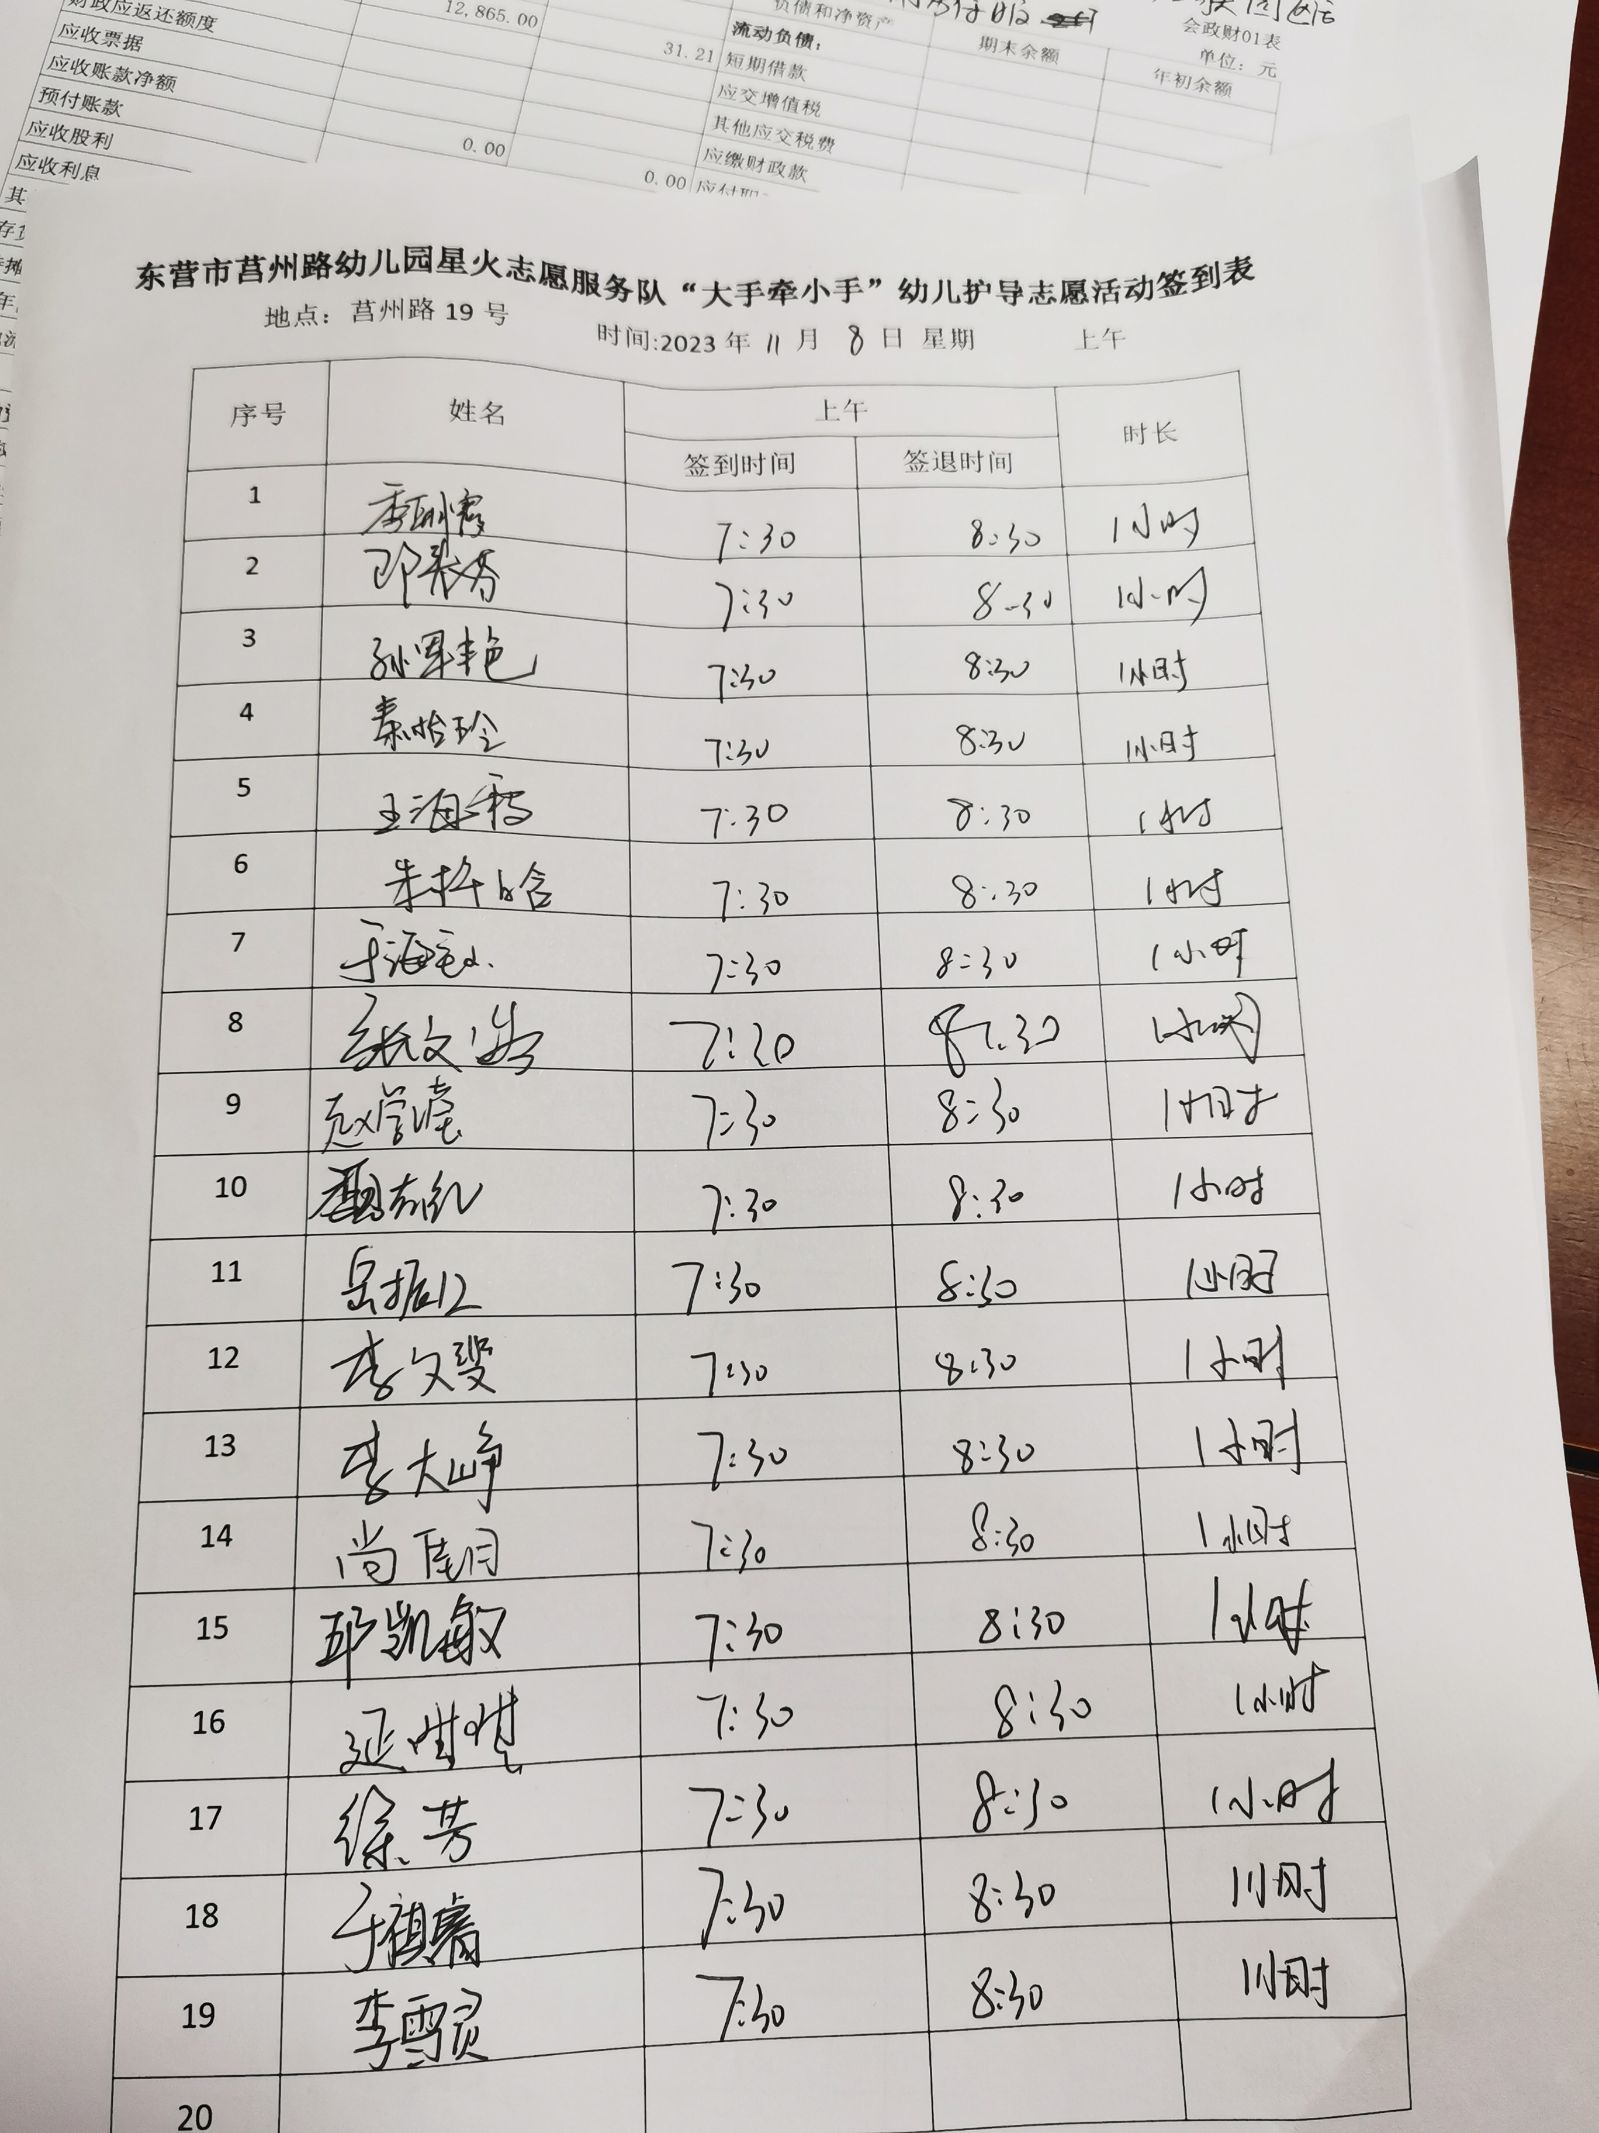 财政应返还额度 12,865.00
应收票据
应收账款净额
预付账款
应收股利 0.00
应收利息 0.00
31.21
负债和净资产 期末余额 年初余额
流动负债：
短期借款
应交增值税
其他应交税费
应缴财政款
会政财01表
单位：元
东营市莒州路幼儿园星火志愿服务队“大手牵小手”幼儿护导志愿活动签到表
地点：莒州路 19 号
时间:2023 年 11 月 8 日 星期 上午
序号 姓名 上午 时长
签到时间 签退时间
1 7:30 8:30 1小时
2 7:30 8:30 1小时
3 孙军艳 7:30 8:30 1小时
4 秦怡玲 7:30 8:30 1小时
5 王海 7:30 8:30 1小时
6 7:30 8:30 1小时
7 于海 7:30 8:30 1小时
8 张文 7:30 8:30 1小时
9 赵学 7:30 8:30 1小时
10 7:30 8:30 1小时
11 7:30 8:30 1小时
12 李文雯 7:30 8:30 1小时
13 李大峥 7:30 8:30 1小时
14 尚 7:30 8:30 1小时
15 凯敏 7:30 8:30 1小时
16 延 7:30 8:30 1小时
17 徐芳 7:30 8:30 1小时
18 于祺睿 7:30 8:30 1小时
19 李雪灵 7:30 8:30 1小时
20